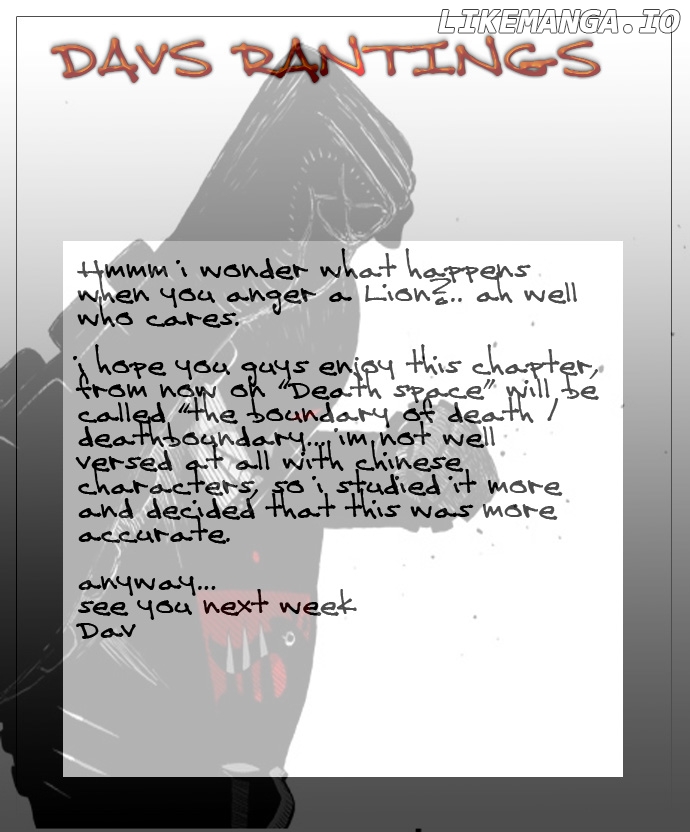 LIKEMANGA.IO
DAVS RANTINGS
Hmmm i wonder what happens
when you anger a Lion?.. ah well
who cares.
i hope you guys enjoy this chapter,
from now on "Death space" will be
called "the boundary of death /
deathboundary... im not well
versed at all with chinese
characters, so i studied it more
and decided that this was more
accurate.
anyway...
see you next week
Dav